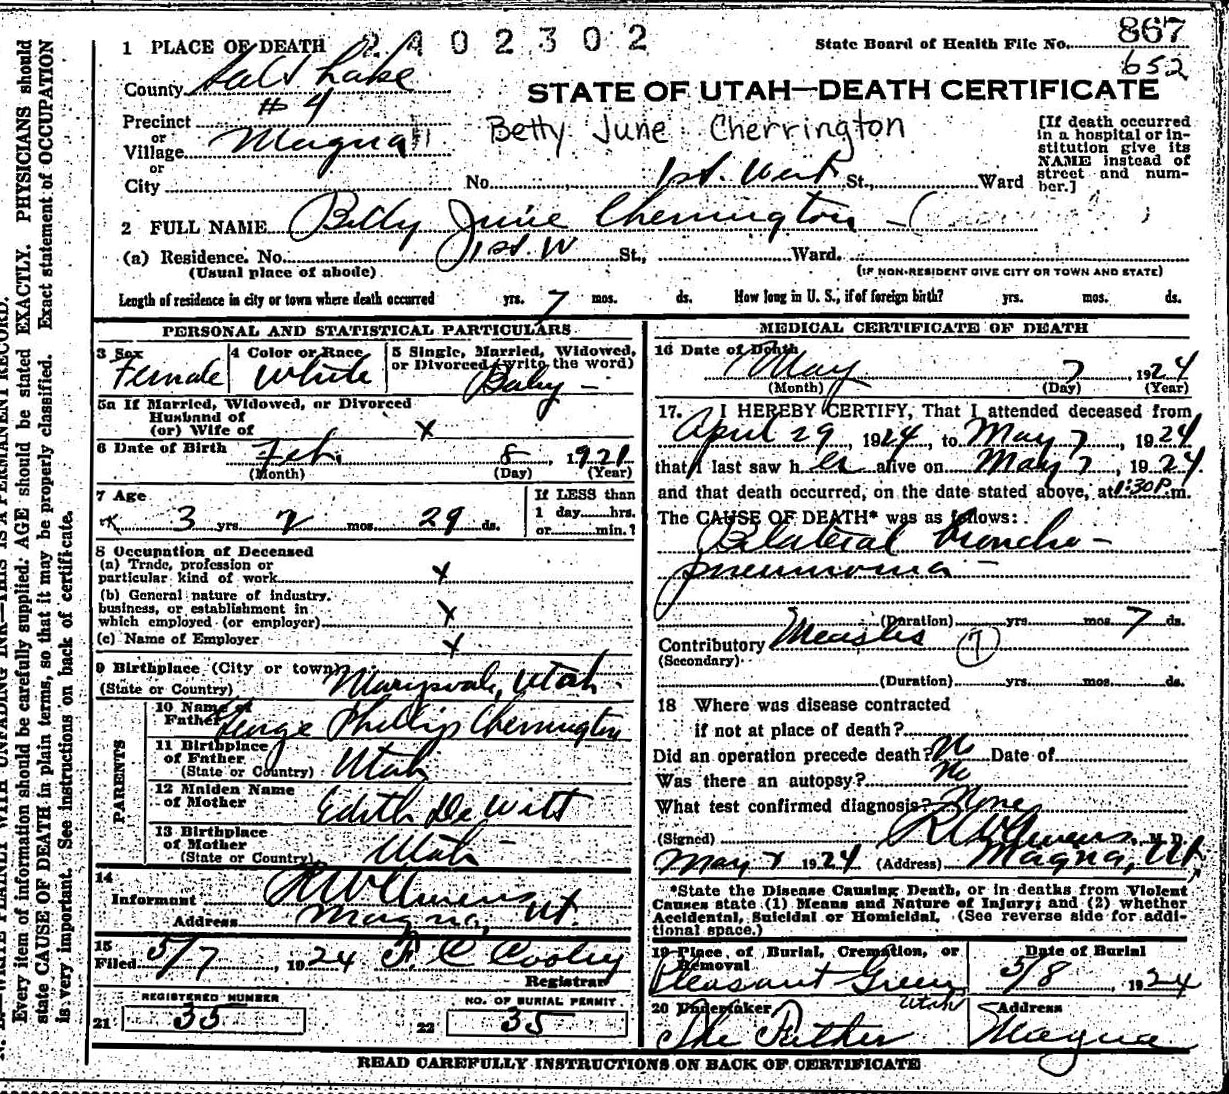 2402302
State Board of Health File No. 867
652
1 PLACE OF DEATH
County Salt Lake
STATE OF UTAH—DEATH CERTIFICATE
Precinct #4
or
Village Magna
or
City No. 1st. West St., Ward
Betty June Cherrington
[If death occurred in a hospital or institution give its NAME instead of street and number.]
2 FULL NAME Betty June Cherrington
(a) Residence. No. 1st. W St., Ward.
(Usual place of abode) (IF NON-RESIDENT GIVE CITY OR TOWN AND STATE)
Length of residence in city or town where death occurred yrs. 7 mos. ds. How long in U. S., if of foreign birth? yrs. mos. ds.
PERSONAL AND STATISTICAL PARTICULARS
3 Sex Female
4 Color or Race White
5 Single, Married, Widowed, or Divorced (write the word) Baby —
5a If Married, Widowed, or Divorced
Husband of
(or) Wife of x
6 Date of Birth Feb. 8, 1921
(Month) (Day) (Year)
7 Age 3 yrs 2 mos. 29 ds.
If LESS than
1 day hrs.
or min.?
8 Occupation of Deceased
(a) Trade, profession or
particular kind of work x
(b) General nature of industry,
business, or establishment in
which employed (or employer) x
(c) Name of Employer x
9 Birthplace (City or town)
(State or Country) Marysvale, Utah.
PARENTS
10 Name of
Father George Phillip Cherrington
11 Birthplace
of Father
(State or Country) Utah
12 Maiden Name
of Mother Edith DeWitt
13 Birthplace
of Mother
(State or Country) Utah —
14
Informant
Address Magna, Ut.
15
Filed 5/7, 1924 F. C. Cooley
Registrar
REGISTERED NUMBER
21 35
NO. OF BURIAL PERMIT
22 35
MEDICAL CERTIFICATE OF DEATH
16 Date of Death
May 7 1924
(Month) (Day) (Year)
17. I HEREBY CERTIFY, That I attended deceased from
April 29, 1924, to May 7, 1924
that I last saw her alive on May 7, 1924
and that death occurred, on the date stated above, at 1:30 P.m.
The CAUSE OF DEATH* was as follows:
Bilateral broncho-
pneumonia —
(Duration) yrs mos 7 ds.
Contributory Measles 7
(Secondary)
(Duration) yrs. mos. ds.
18 Where was disease contracted
if not at place of death?
Did an operation precede death? No Date of
Was there an autopsy? No
What test confirmed diagnosis? None
(Signed) M. D.
May 7 1924 (Address) Magna, Ut
*State the Disease Causing Death, or in deaths from Violent
Causes state (1) Means and Nature of Injury; and (2) whether
Accidental, Suicidal or Homicidal. (See reverse side for addi-
tional space.)
19 Place of Burial, Cremation, or
Removal
Pleasant Green Utah
Date of Burial
5/8, 1924
20 Undertaker
The Father
Address
Magna
READ CAREFULLY INSTRUCTIONS ON BACK OF CERTIFICATE
Every item of information should be carefully supplied. AGE should be stated EXACTLY. PHYSICIANS should
state CAUSE OF DEATH in plain terms, so that it may be properly classified. Exact statement of OCCUPATION
is very important. See instructions on back of certificate.
WRITE PLAINLY WITH UNFADING INK—THIS IS A PERMANENT RECORD.